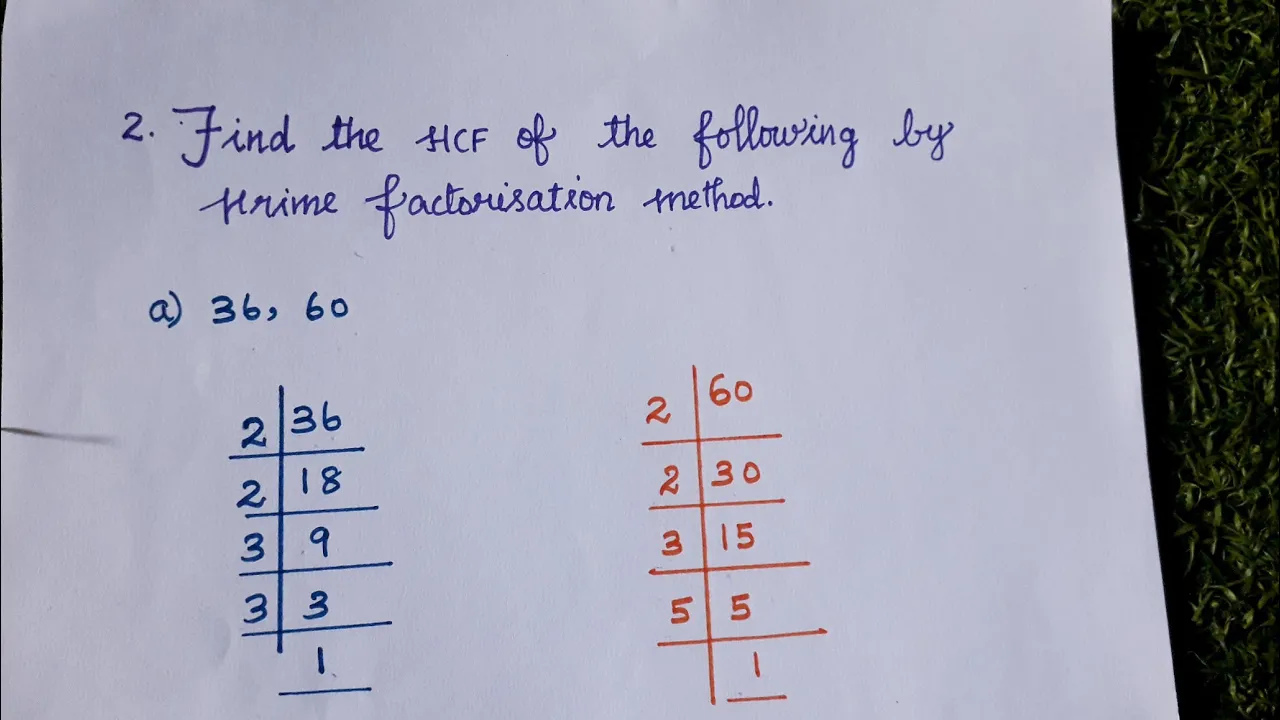 2. Find the HCF of the following by
prime factorisation method.
a) 36, 60
2 36
2 18
3 9
3 3
1
2 60
2 30
3 15
5 5
1